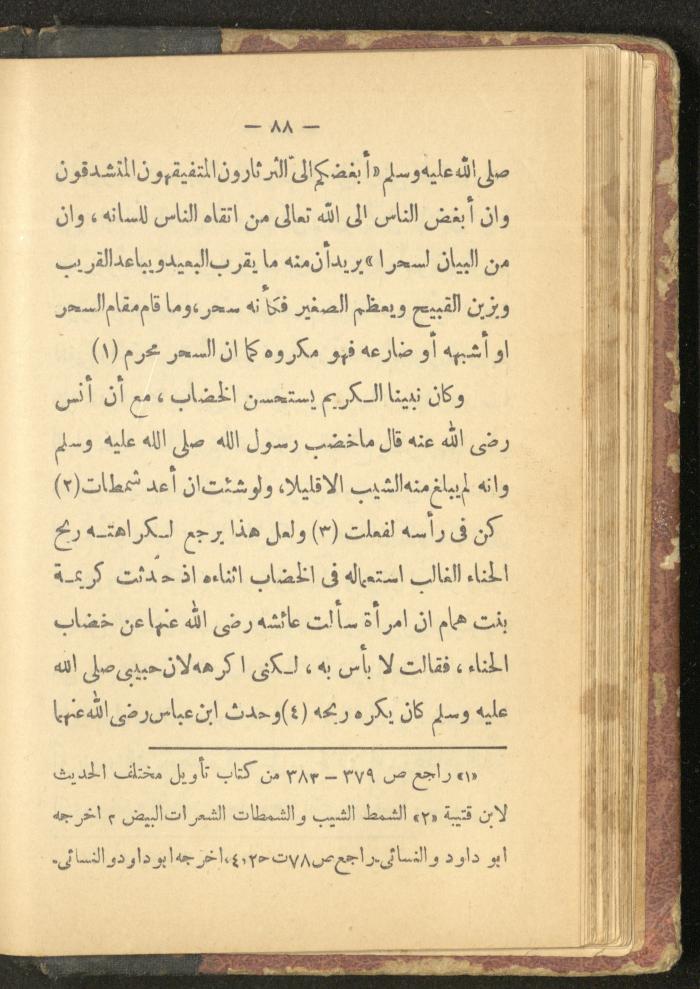 — ٨٨ —
صلى الله عليه وسلم «أبغضكم الىّ الثرثارون المتفيقهون المتشدقون
وان أبغض الناس الى الله تعالى من اتقاه الناس للسانه ، وان
من البيان لسحرا» يريد أن منه ما يقرب البعيد ويباعد القريب
ويزين القبيح ويعظم الصغير فكأنه سحر ، وما قام مقام السحر
او أشبهه أو ضارعه فهو مكروه كما ان السحر محرم (١)
وكان نبينا الكريم يستحسن الخضاب ، مع أن أنس
رضى الله عنه قال ما خضب رسول الله صلى الله عليه وسلم
وانه لم يبلغ منه الشيب الا قليلا، ولو شئت ان أعد شمطات (٢)
كن فى رأسه لفعلت (٣) ولعل هذا يرجع لكراهته ريح
الحناء الغالب استعماله فى الخضاب اثناءه اذ حدّثت كريمة
بنت همام ان امرأة سألت عائشه رضى الله عنها عن خضاب
الحناء ، فقالت لا بأس به ، لكنى اكرهه لان حبيبى صلى الله
عليه وسلم كان يكره ريحه (٤) وحدث ابن عباس رضى الله عنهما
«١» راجع ص ٣٧٩ — ٣٨٣ من كتاب تأويل مختلف الحديث
لابن قتيبة «٢» الشمط الشيب والشمطات الشعرات البيض ٣ اخرجه
ابو داود والنسائى. راجع ص ٧٨ ت ح ٢، ٤، اخرجه ابو داود والنسائى.